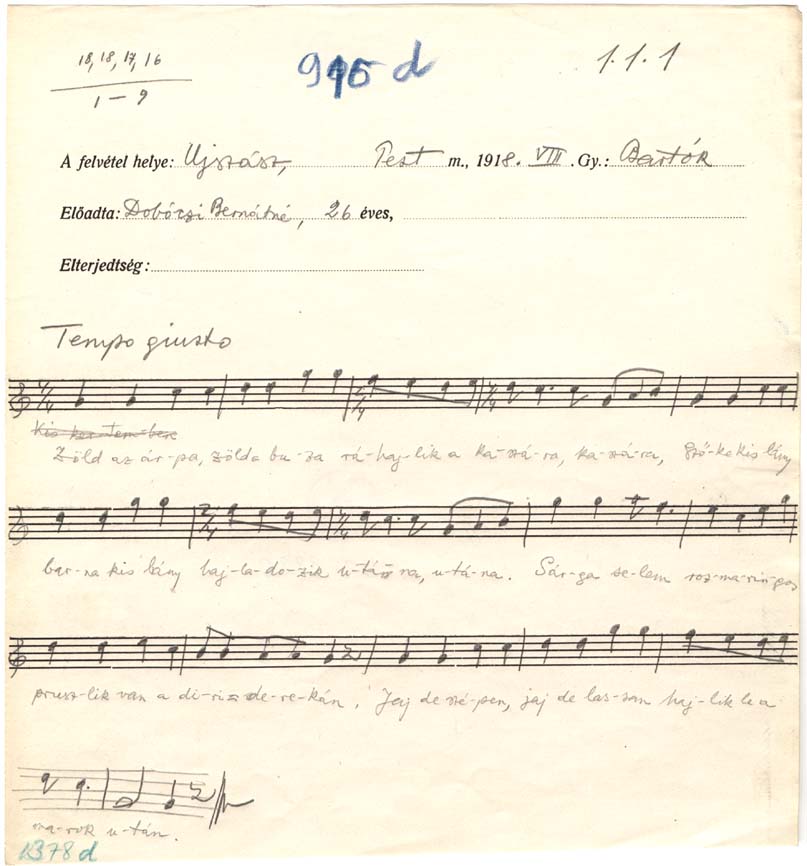 18, 18, 17, 16
1 – 9
915 d
1.1.1
A felvétel helye: Ujszász, Pest m., 1918. VIII. Gy.: Bartók
Előadta: Dobóczi Bernátné, 26 éves,
Elterjedtség:
Tempo giusto
Kis ker-tem-ben
Zöld az ár-pa, zöld a bu-za rá-haj-lik a ka-szá-ra, ka-szá-ra, Sző-ke kis lány
bar-na kis lány haj-la-do-zik u-tá-na, u-tá-na. Sár-ga se-lem roz-ma-rin-gos
prusz-lik van a de-re-kán, Jaj de szé-pen, jaj de las-san haj-lik le a
ma-rok u-tán.
1378 d